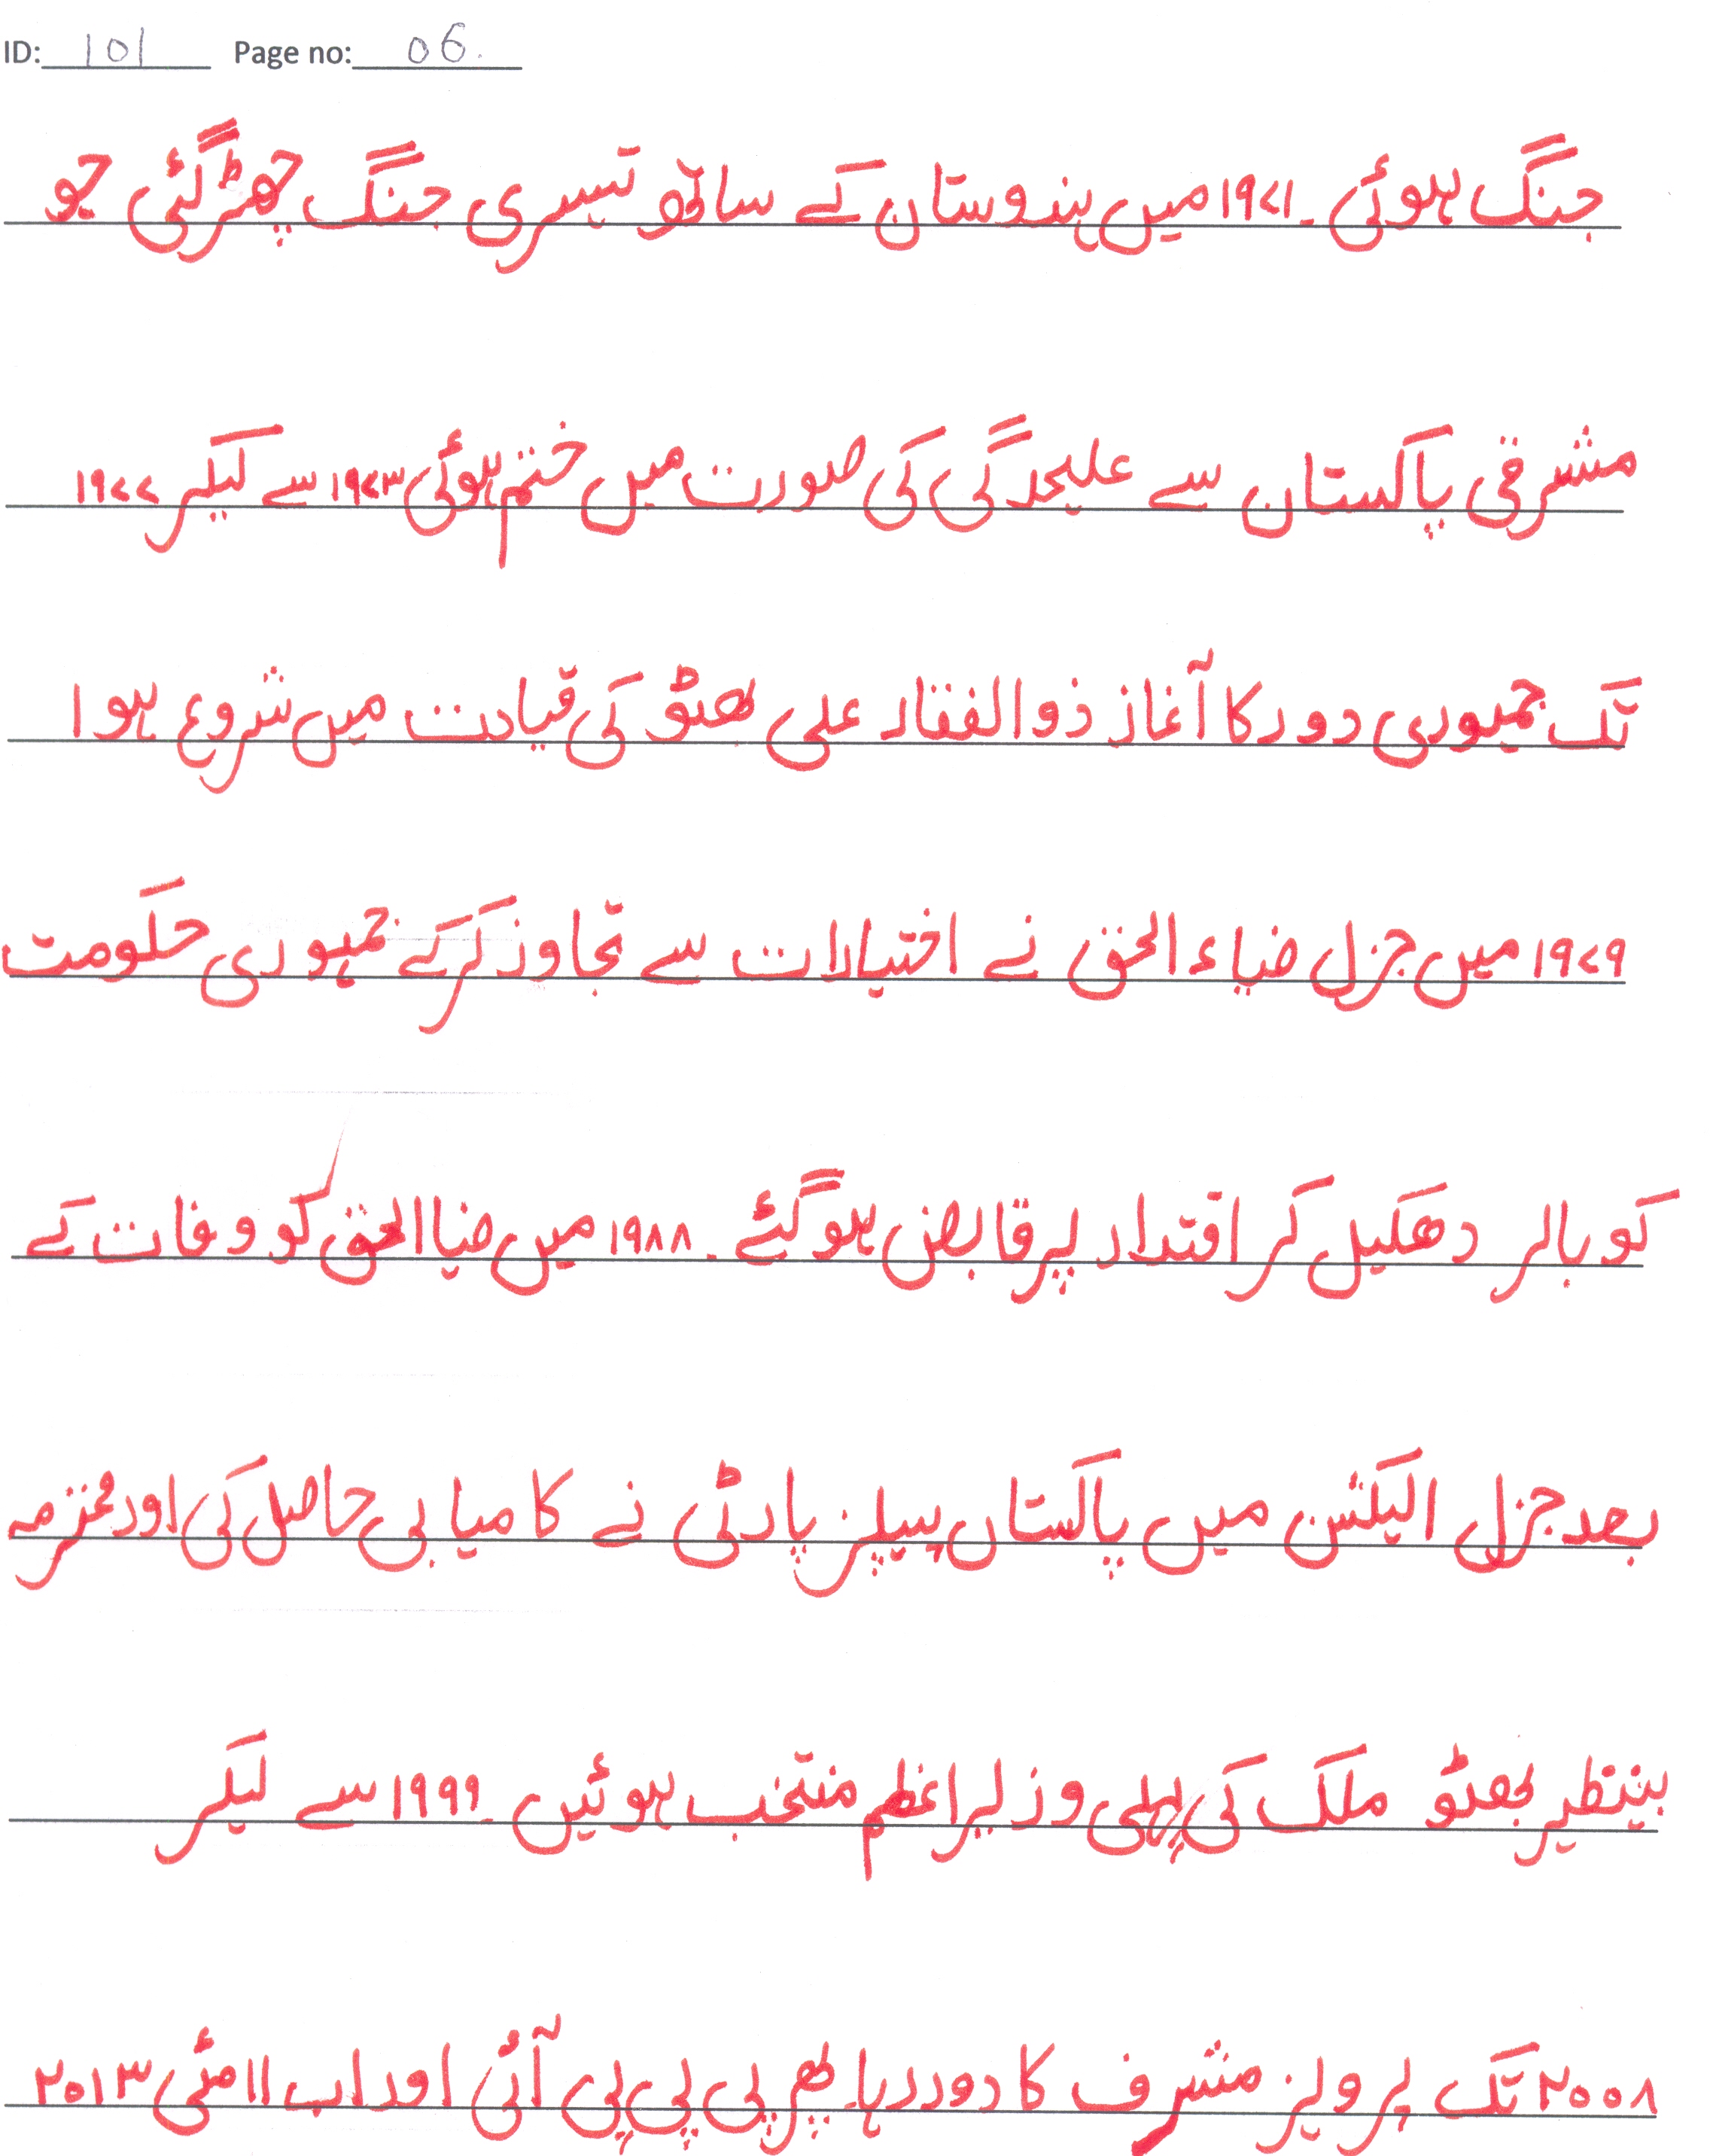 ID: 101 Page no: 06
جنگ ہوئی ۔ ۱۹۷۱ میں ہندوستان کے ساتھ تیسری جنگ چھڑ گئی جو
مشرقی پاکستان سے علیحدگی کی صورت میں ختم ہوئی ۱۹۷۳ سے لیکر ۱۹۷۷
تک جمہوری دور کا آغاز ذوالفقار علی بھٹو کی قیادت میں شروع ہوا
۱۹۷۹ میں جنرل ضیاء الحق نے اختیارات سے تجاوز کرکے جمہوری حکومت
کو باہر دھکیل کر اقتدار پر قابض ہوگئے ۔ ۱۹۸۸ میں ضیا الحق کو وفات کے
بعد جنرل الیکشن میں پاکستان پیپلز پارٹی نے کامیابی حاصل کی اور محترمہ
بینظیر بھٹو ملک کی پہلی وزیراعظم منتخب ہوئیں ۔ ۱۹۹۹ سے لیکر
۲۰۰۸ تک پرویز مشرف کا دور رہا پھر پی پی پی آئی اور اب ۱۱ مئی ۲۰۱۳